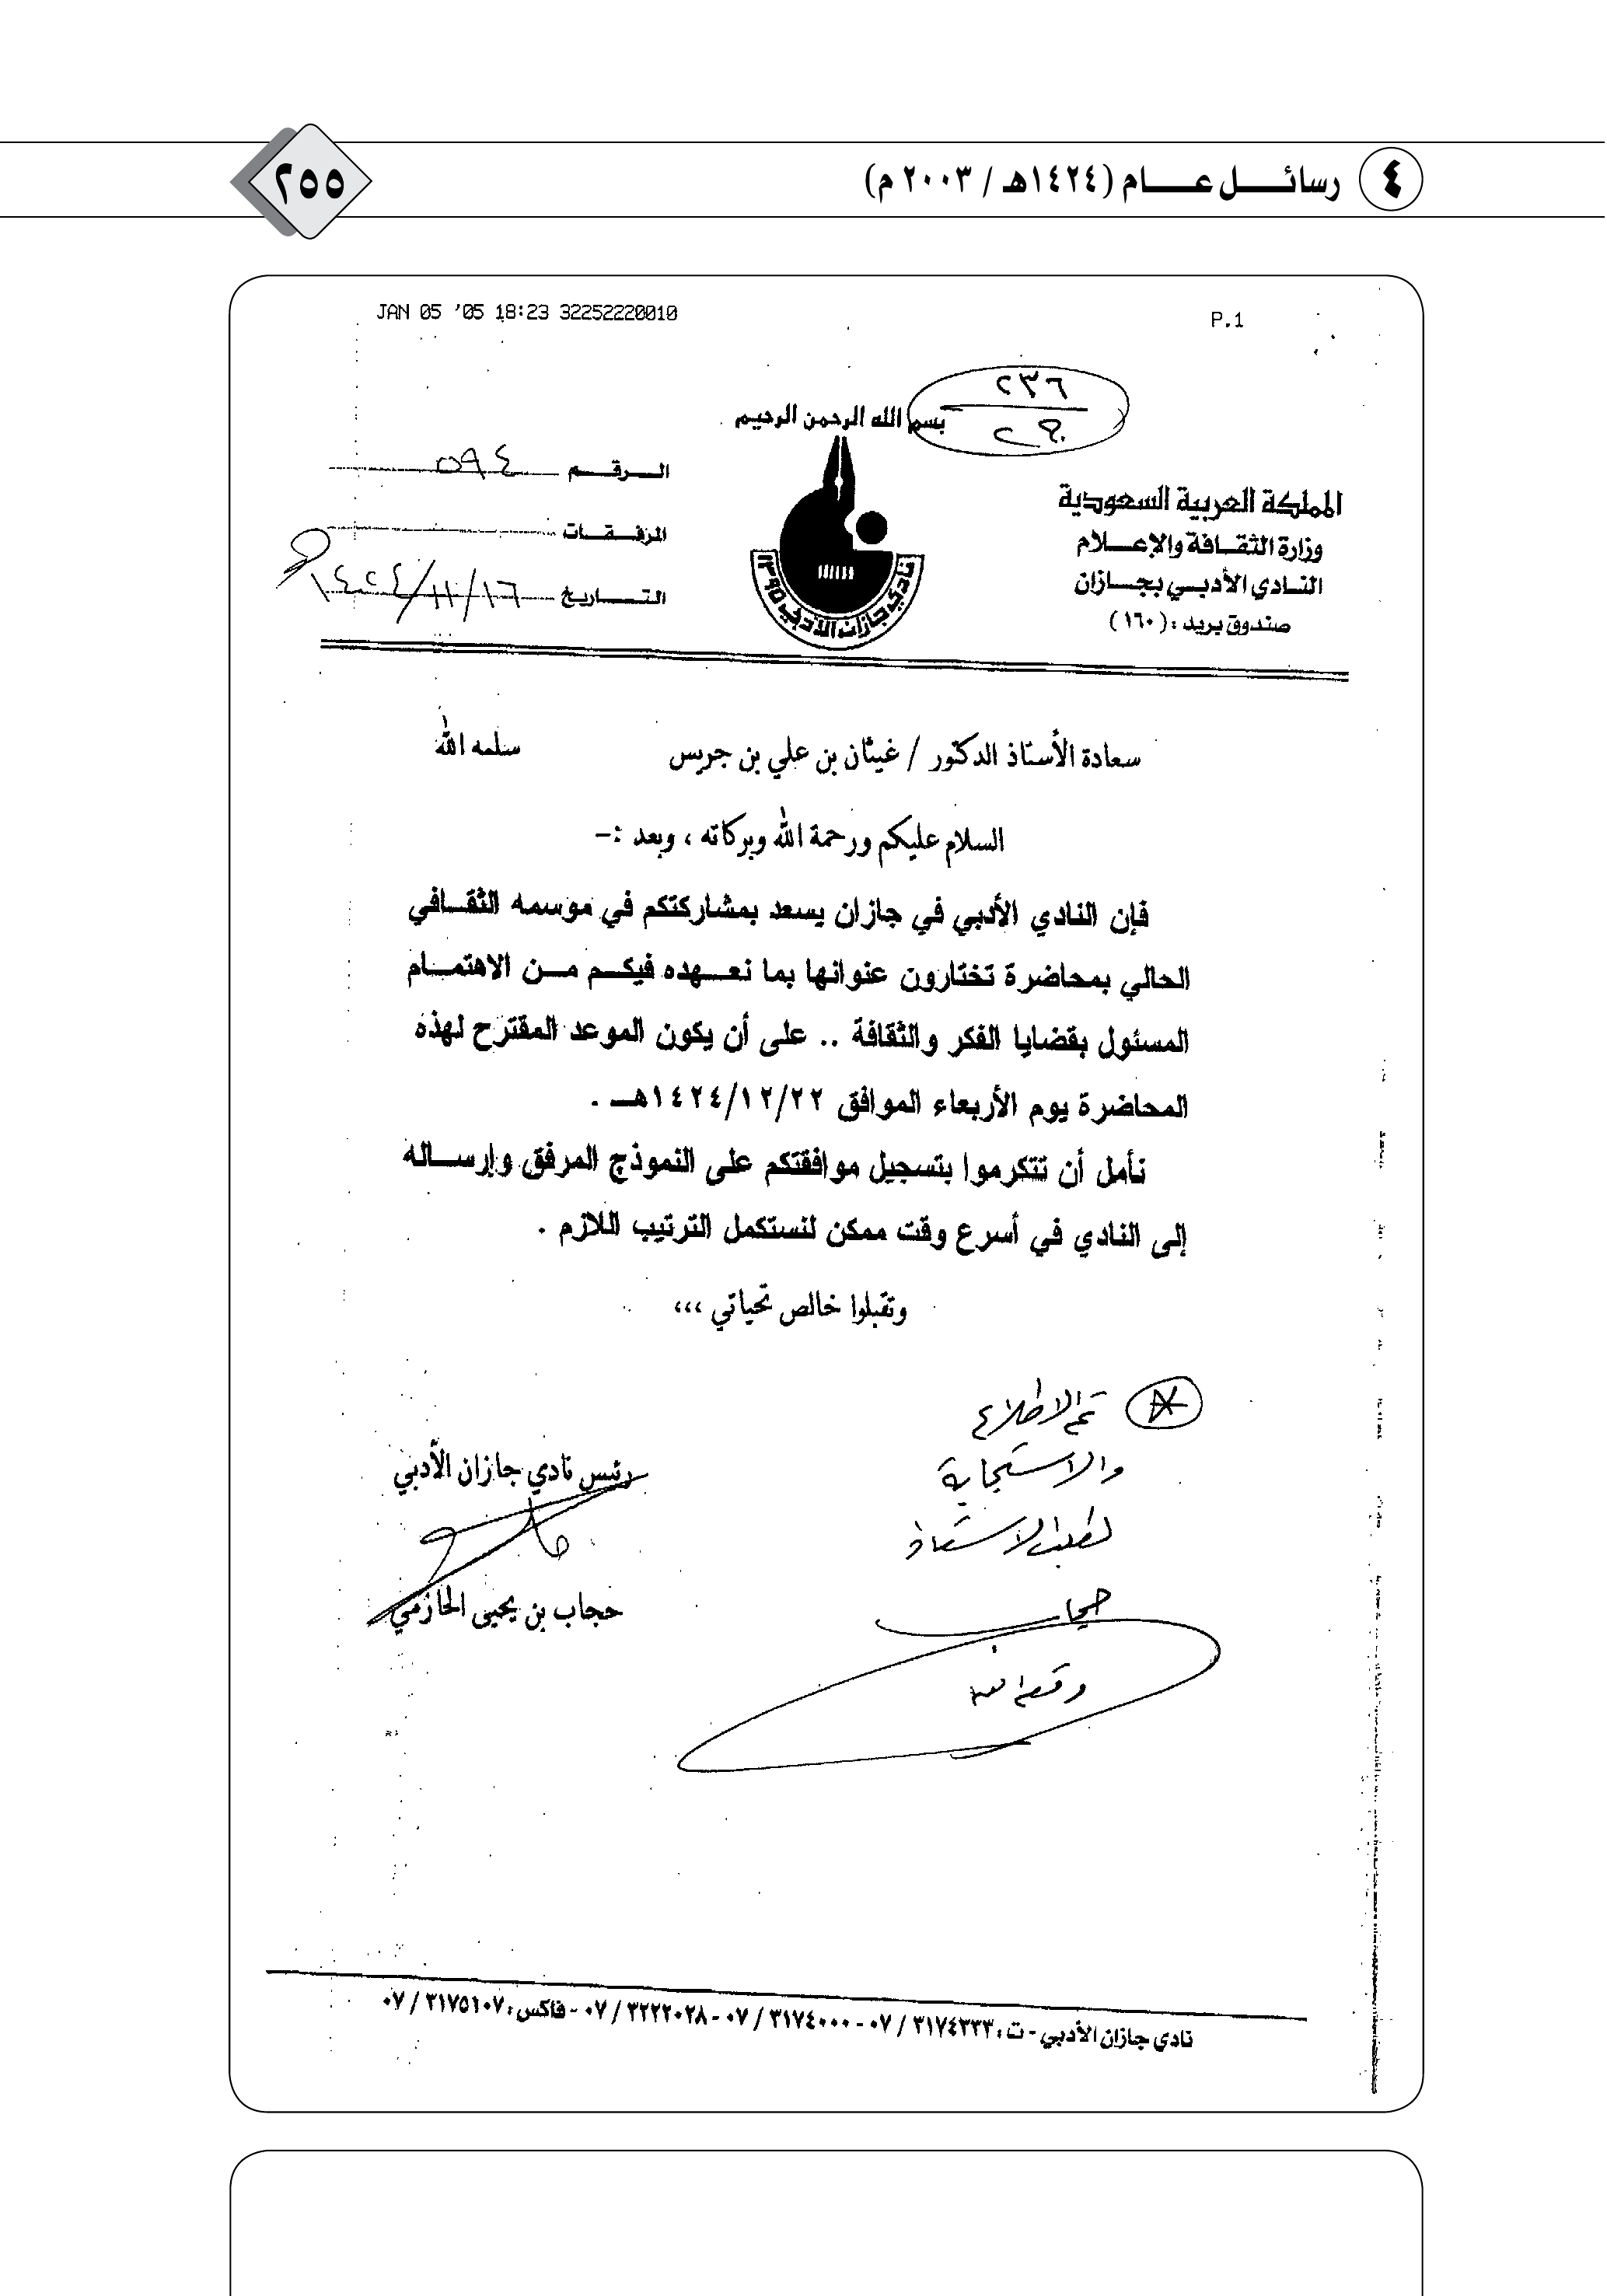 ٤ رسائل عام (١٤٢٤هـ / ٢٠٠٣ م)
٢٥٥
JAN 05 '05 18:23 32252220010
P.1
٢٣٦
بسم الله الرحمن الرحيم
المملكة العربية السعودية
وزارة الثقافة والإعلام
النادي الأدبي بجازان
صندوق بريد : (١٦٠)
نادي جازان الأدبي ١٣٩٥
الرقم ٥٩٤
المرفقات
التاريخ ١٤٢٤/١١/١٦
سعادة الأستاذ الدكتور / غيثان بن علي بن جريس سلمه الله
السلام عليكم ورحمة الله وبركاته ، وبعد :-
فإن النادي الأدبي في جازان يسعد بمشاركتكم في موسمه الثقافي
الحالي بمحاضرة تختارون عنوانها بما نعهده فيكم من الاهتمام
المسئول بقضايا الفكر والثقافة .. على أن يكون الموعد المقترح لهذه
المحاضرة يوم الأربعاء الموافق ١٤٢٤/١٢/٢٢هـ .
نأمل أن تتكرموا بتسجيل موافقتكم على النموذج المرفق وإرساله
إلى النادي في أسرع وقت ممكن لنستكمل الترتيب اللازم .
وتقبلوا خالص تحياتي ،،،
تم الاطلاع
والاستجابة
لطلب الاستاذ
حجاب
وفقه الله
رئيس نادي جازان الأدبي
حجاب بن يحيى الحازمي
نادي جازان الأدبي - ت : ٣١٧٤٣٣٣ / ٠٧ - ٣١٧٤٠٠٠ / ٠٧ - ٣٢٢٢٠٢٨ / ٠٧ - فاكس : ٣١٧٥١٠٧ / ٠٧